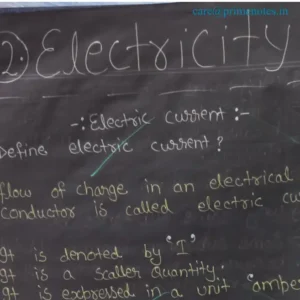 care@primenotes.in
2. Electricity
-: Electric current :-
Define electric current?
flow of charge in an electrical
conductor is called electric cu
It is denoted by 'I'
It is a scaller quantity.
It is exbressed in a unit 'ambe